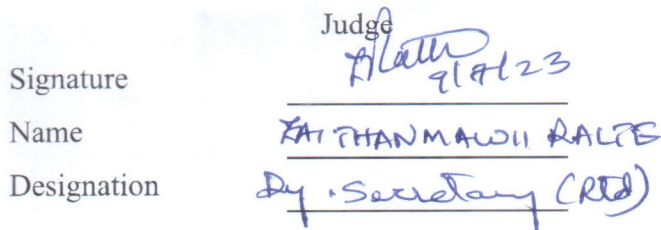 Judge
Signature
9/8/23
Name ZAITHANMAWII RALTE
Designation Dy. Secretary (Rtd)